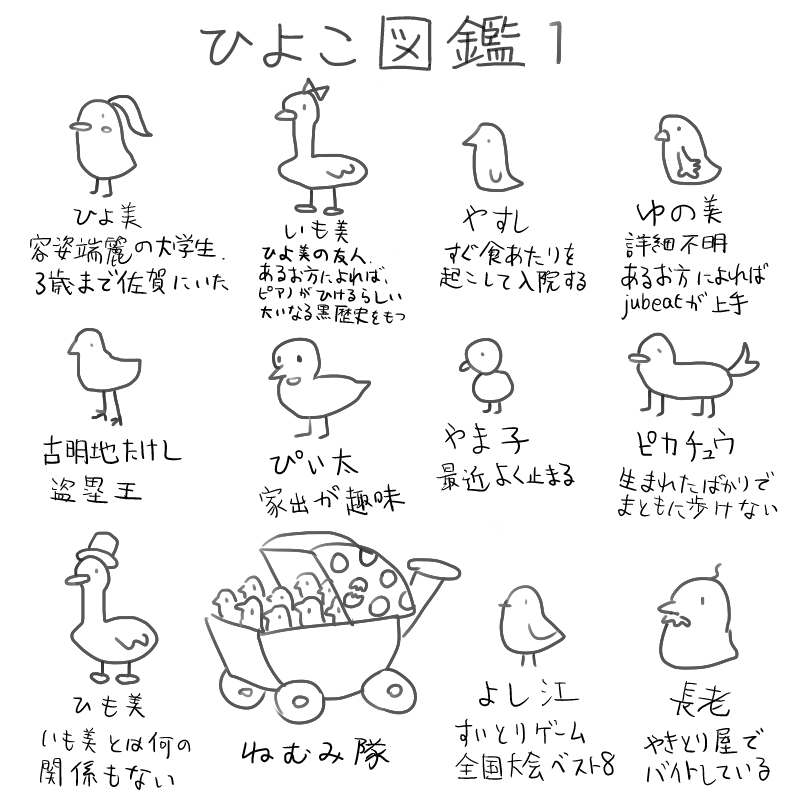 ひよこ図鑑1
ひよ美
容姿端麗の大学生.
3歳まで佐賀にいた
いも美
ひよ美の友人.
あるお方によれば、
ピアノがひけるらしい
大いなる黒歴史をもつ
やすし
すぐ食あたりを
起こして入院する
ゆの美
詳細不明
あるお方によれば
jubeatが上手
古明地たけし
盗塁王
ぴぃ太
家出が趣味
やま子
最近よく止まる
ピカチュウ
生まれたばかりで
まともに歩けない
ひも美
いも美とは何の
関係もない
ねむみ隊
よし江
すいとりゲーム
全国大会ベスト8
長老
やきとり屋で
バイトしている